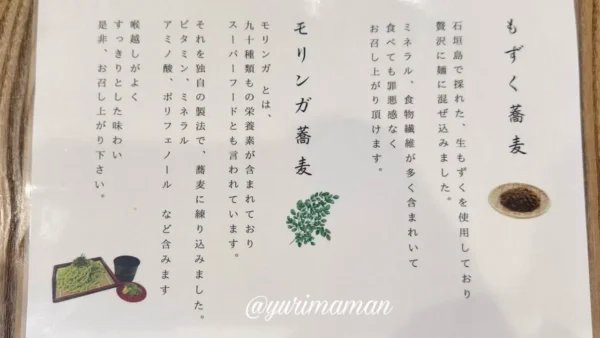 もずく蕎麦
石垣島で採れた、生もずくを使用しており
贅沢に麺に混ぜ込みました。
ミネラル、食物繊維が多く含まれいて
食べても罪悪感なく
お召し上がり頂けます。
モリンガ蕎麦
モリンガ とは、
九十種類もの栄養素が含まれており
スーパーフードとも言われています。
それを独自の製法で、蕎麦に練り込みました。
ビタミン、ミネラル
アミノ酸、ポリフェノール など含みます
喉越しがよく
すっきりとした味わい
是非、お召し上がり下さい。
@yurimaman